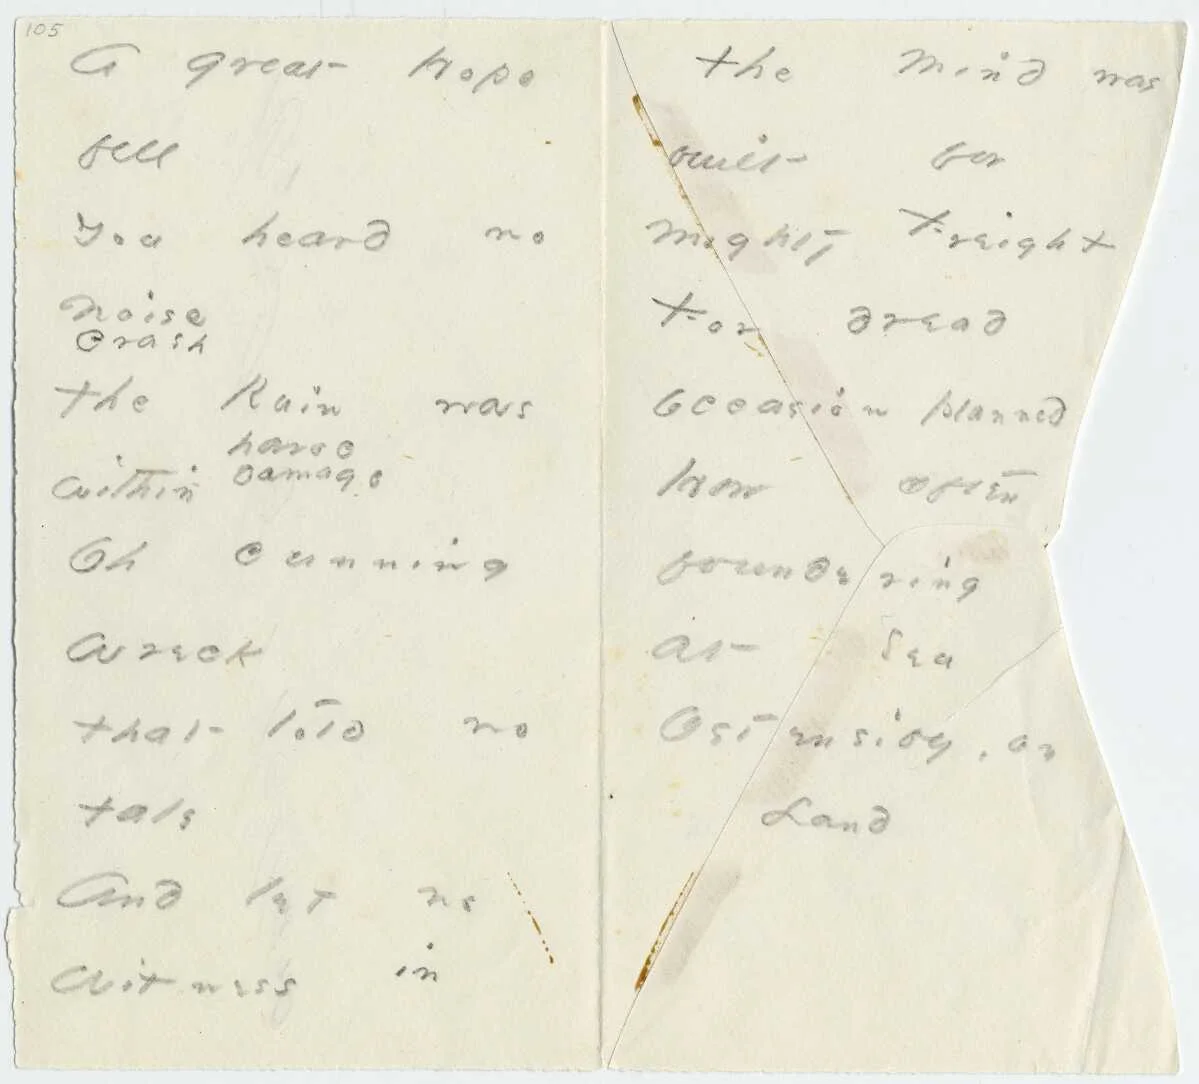 105
A great Hope
fell
You heard no
noise
Crash
The Ruin was
havoc
damage
within
Oh cunning
wreck
that told no
tale
And let no
witness in
The mind was
built for
mighty Freight
For dread
occasion planned
How often
foundering
at Sea
Ostensibly, on
Land